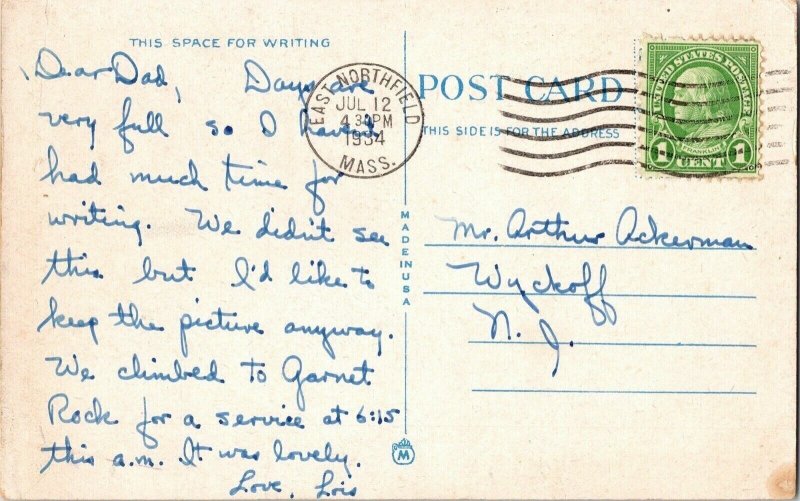 THIS SPACE FOR WRITING
Dear Dad, Days are
very full so I haven't
had much time for
writing. We didn't see
this but I'd like to
keep the picture anyway.
We climbed to Garnet
Rock for a service at 6:15
this a.m. It was lovely.
Love, Lois
MADE IN USA
M
POST CARD
THIS SIDE IS FOR THE ADDRESS
EAST NORTHFIELD
JUL 12
4 30 PM
1934
MASS.
UNITED STATES POSTAGE
FRANKLIN
1 CENT 1
Mr. Arthur Ackerman
Wyckoff
N. J.